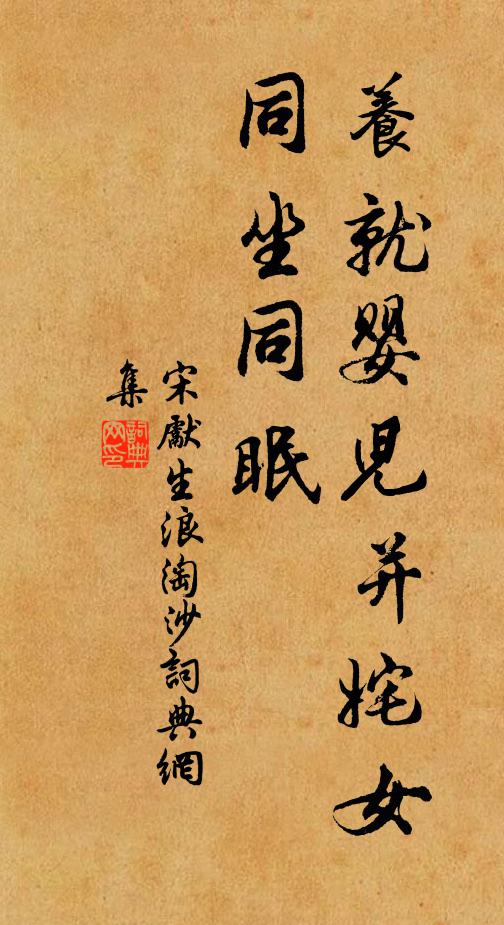 養就嬰兒并姹女
同坐同眠
宋獻生浪淘沙詞典網
集
詞典
网印